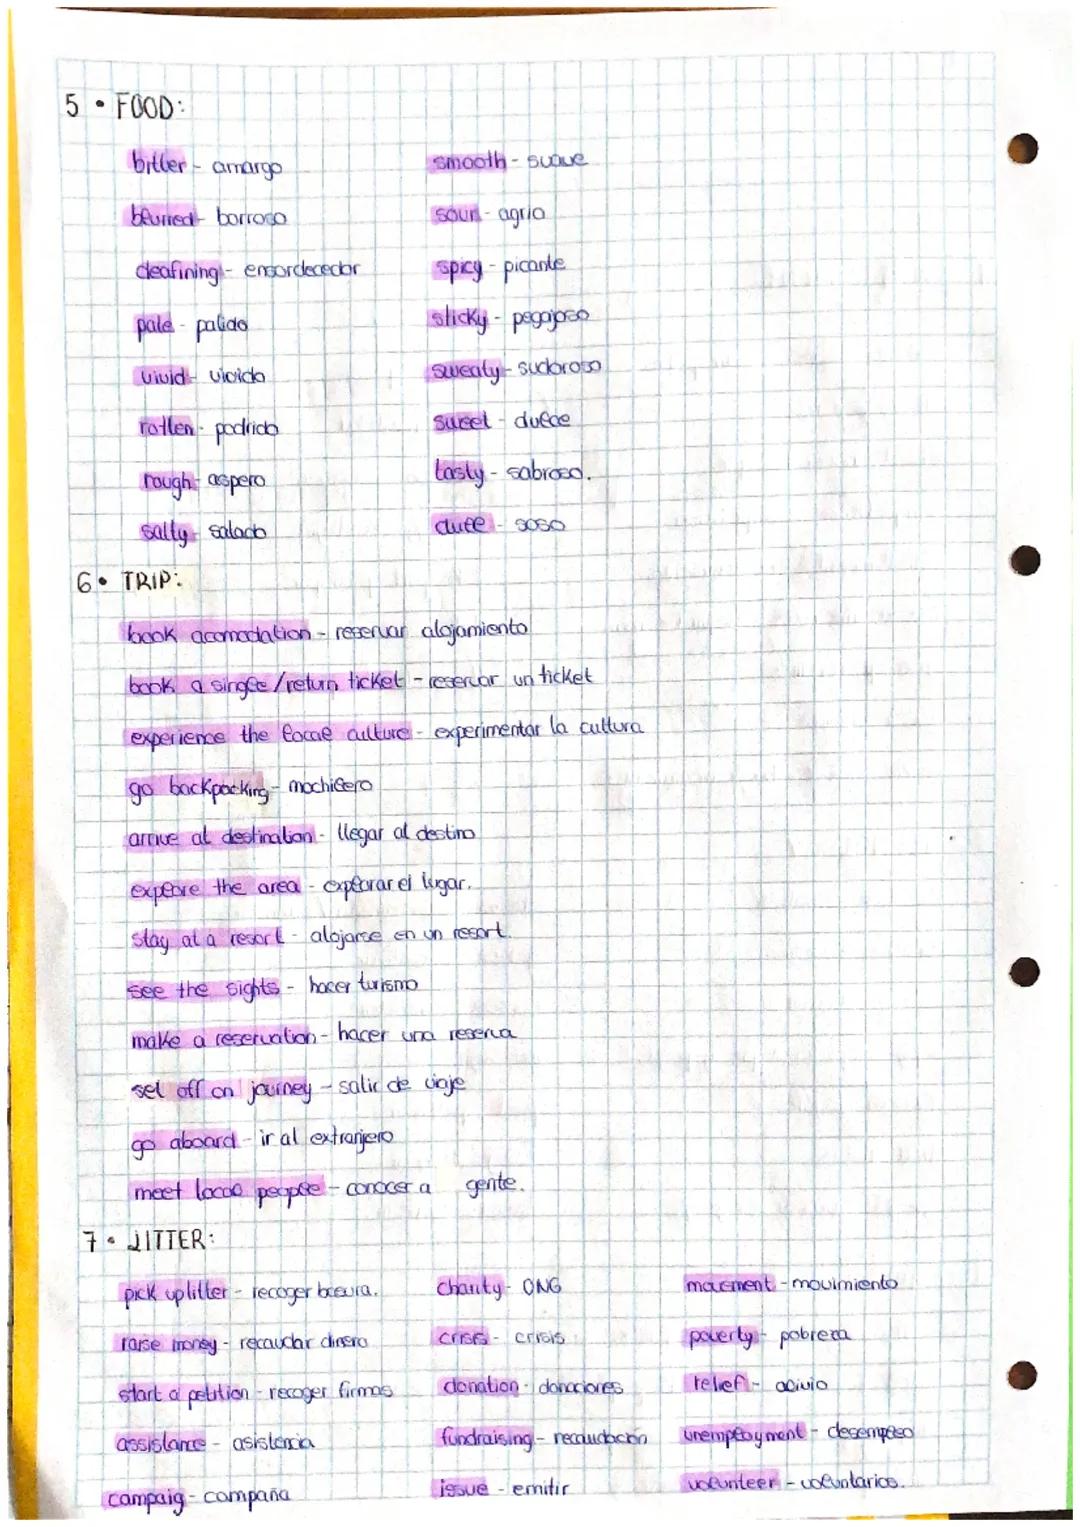 5 • FOOD:
bitter - amargo
blurred - borroso
deafining - ensordecedor
pale - palido
vivid - vivido
rotten - podrido
rough - aspero
salty - salado
smooth - suave
sour - agrio
spicy - picante
sticky - pegajoso
sweaty - sudoroso
sweet - dulce
tasty - sabroso.
dull - soso
6 • TRIP:
book acomodation - reservar alojamiento
book a single/return ticket - reservar un ticket
experience the local culture - experimentar la cultura
go backpacking - mochilero
arrive at destination - llegar al destino
explore the area - explorar el lugar.
stay at a resort - alojarse en un resort.
see the sights - hacer turismo
make a reservation - hacer una reserva
set off on journey - salir de viaje
go aboard - ir al extranjero
meet local people - conocer a gente.
7 • LITTER:
pick up litter - recoger basura.
raise money - recaudar dinero
start a petition - recoger firmas
assistance - asistencia
campaig - campaña
charity - ONG
crisis - crisis
donation - donaciones
fundraising - recaudación
issue - emitir
movement - movimiento
poverty - pobreza
relief - alivio
unemployment - desempleo
volunteer - voluntarios.